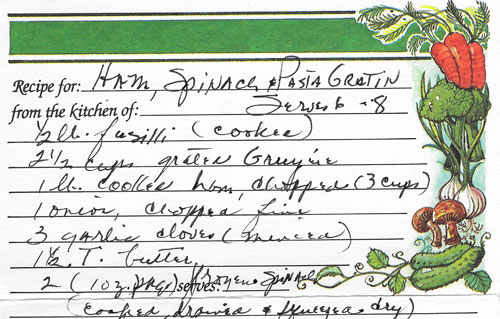 Recipe for: HAM, SPINACH & PASTA GRATIN
from the kitchen of: Serves 6 - 8
1/2 lb. fusilli (cooked)
2 1/2 cups grated Gruyére
1 lb. cooked ham, chopped (3 cups)
1 onion, chopped fine
3 garlic cloves (minced)
1 1/2 T. butter
2 (10z. pkgs) serves: frozen spinach
(cooked, drained & squeezed dry)